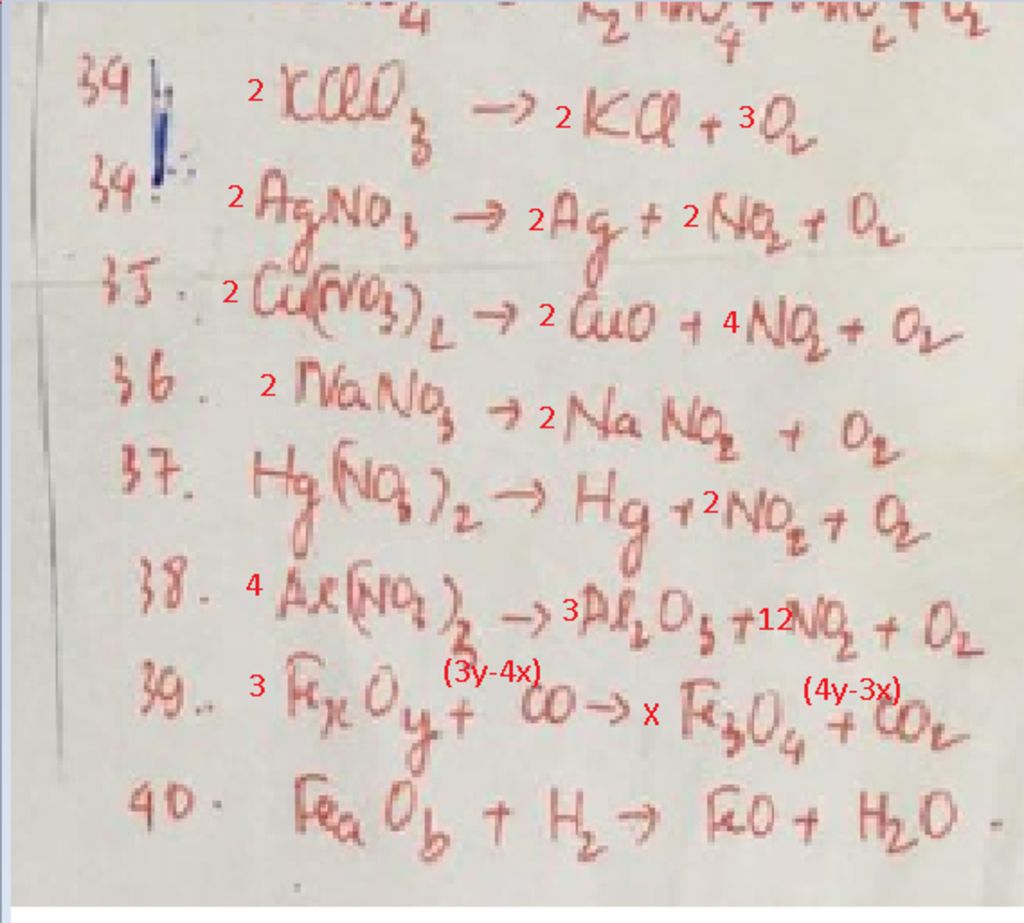 K₂MnO₄ + MnO₂ + O₂
34 2 KClO₃ → 2 KCl + 3 O₂
34. 2 AgNO₃ → 2 Ag + 2 NO₂ + O₂
35. 2 Cu(NO₃)₂ → 2 CuO + 4 NO₂ + O₂
36. 2 NaNO₃ → 2 NaNO₂ + O₂
37. Hg(NO₃)₂ → Hg + 2 NO₂ + O₂
38. 4 Al(NO₃)₃ → 3 Al₂O₃ + 12 NO₂ + O₂
39. 3 FeₓOᵧ + (3y-4x) CO → x Fe₃O₄ + (4y-3x) CO₂
40. FeₐO_b + H₂ → FeO + H₂O.